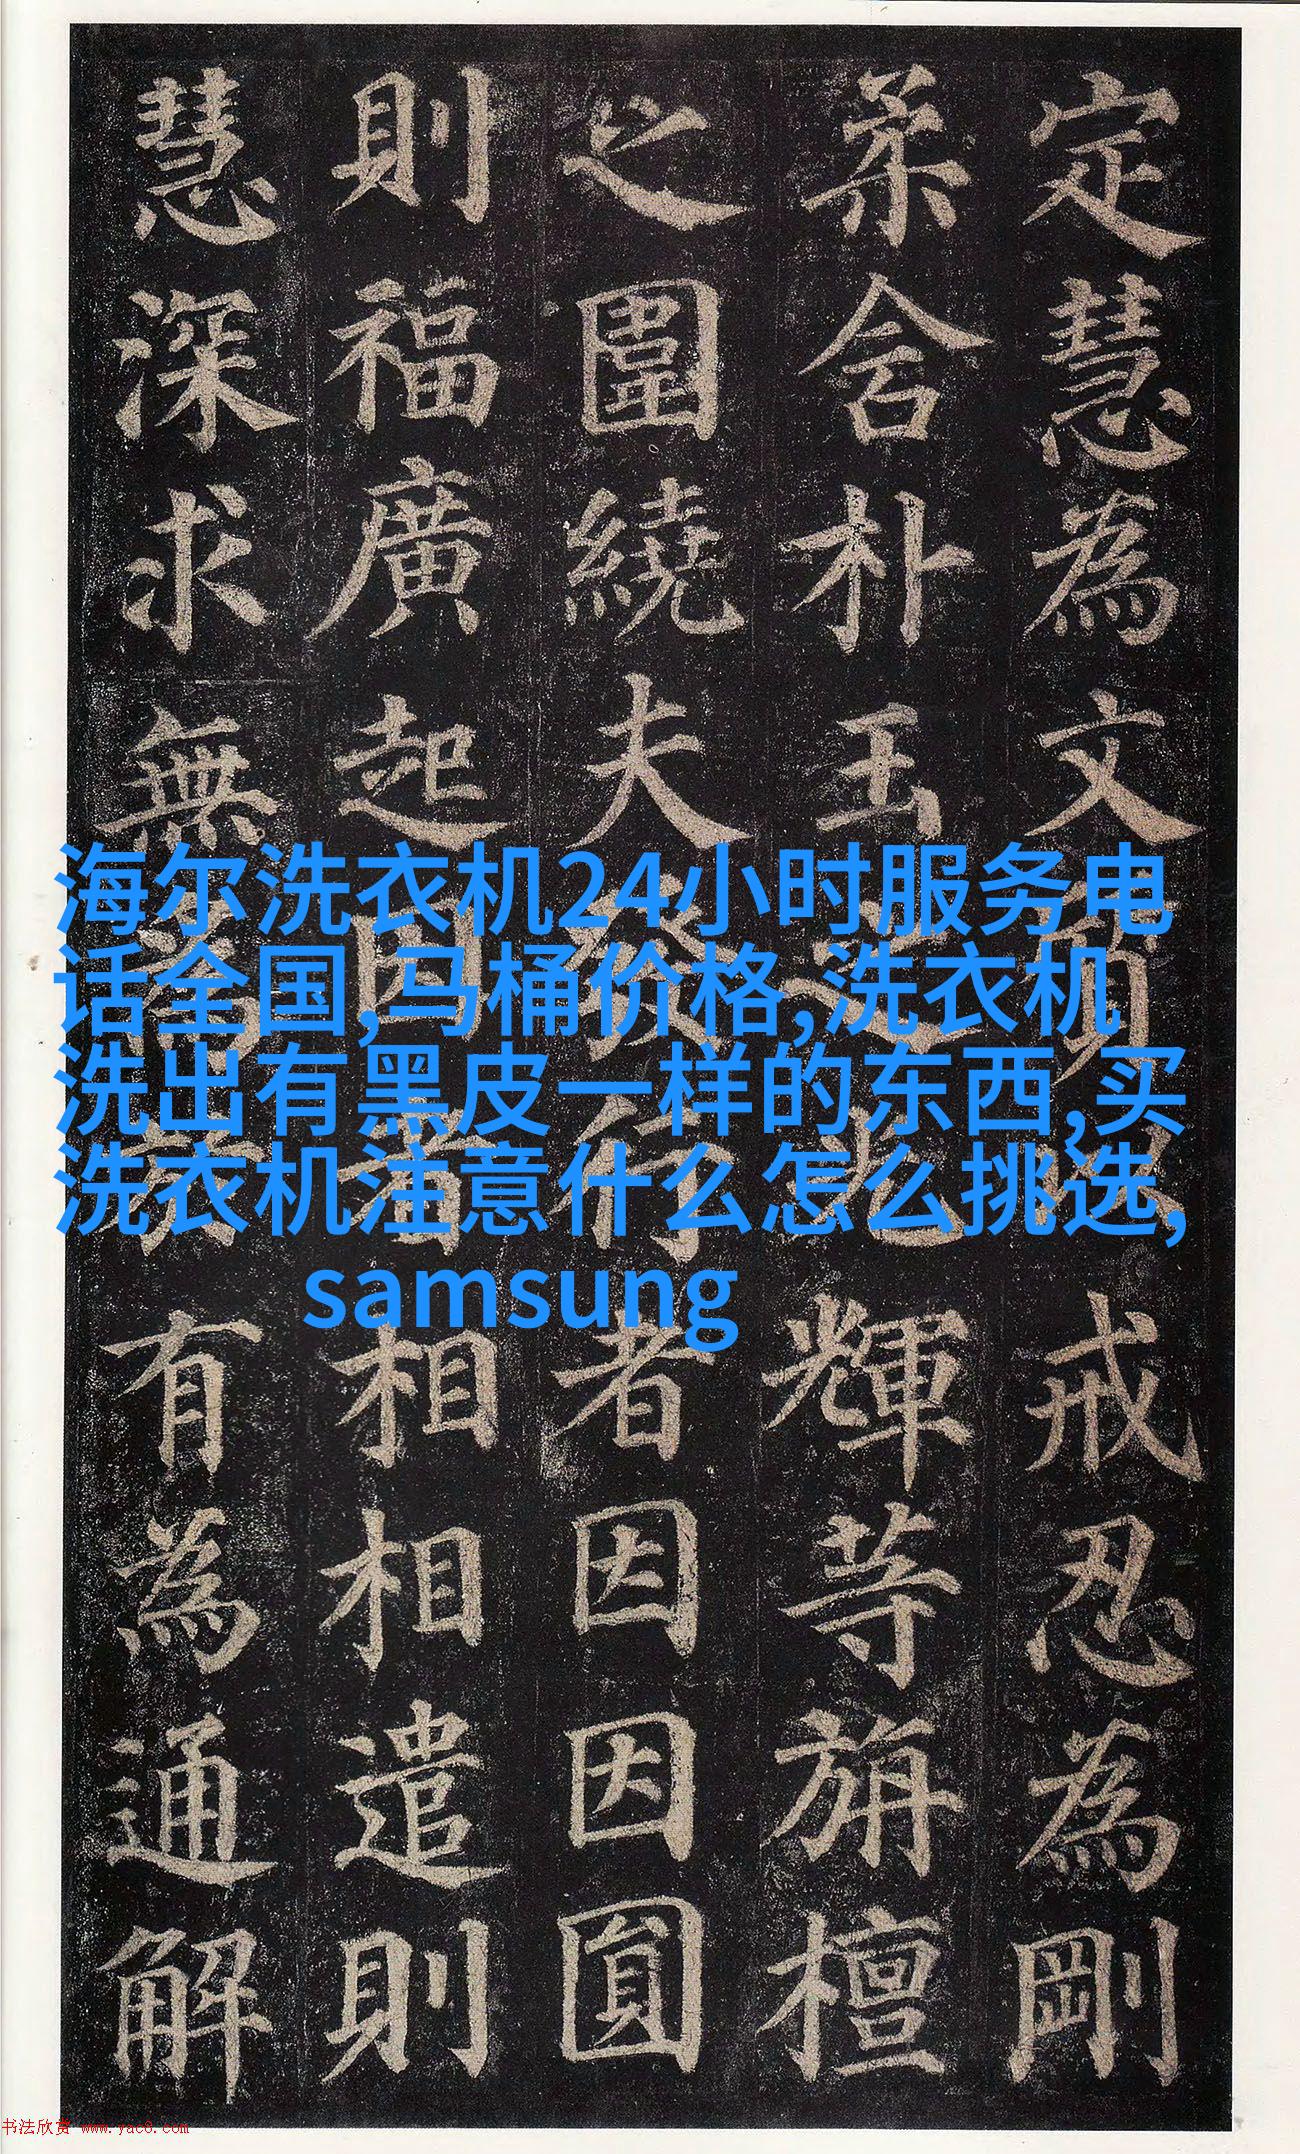 定慧為文質戒忍為剛
柔含朴玉之光輝等旃檀
之圍繞夫發行者因因圓
則福廣起因者相相遣則
慧深求無有為通解
海尔洗衣机24小时服务电
话全国,马桶价格,洗衣机
洗出有黑皮一样的东西,买
洗衣机注意什么怎么挑选,
samsung
书法欣赏 www.yac8.com